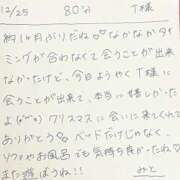 12/25 80分 T様
約1ヶ月ぶりだね♡なかなかタイ
ミングが合わなくて会うことが出来
なかったけど、今日ようやくT様に
会うことが出来て、本当に嬉しかった
よ(^^) クリスマスに会いに来てくれて
ありがとう♡ベッドだけじゃなく、
ソファやお風呂でも気持ち良かったね♡
また遊ぼうね!!
みと